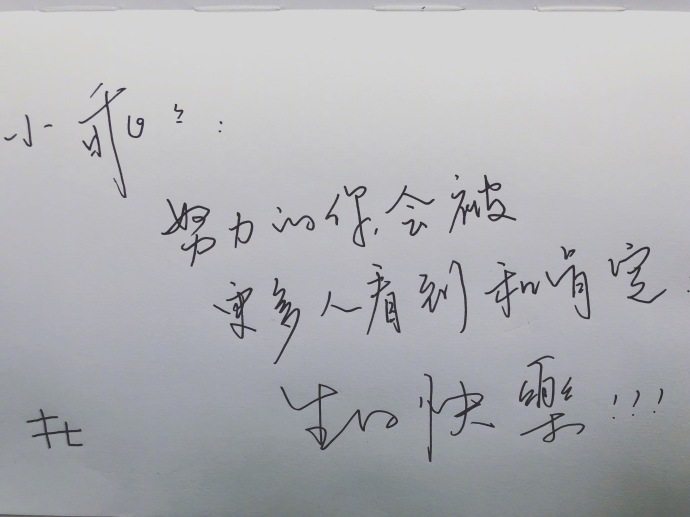 小乖乖:
努力的你,会被
更多人看到和肯定.
生日快樂!!!